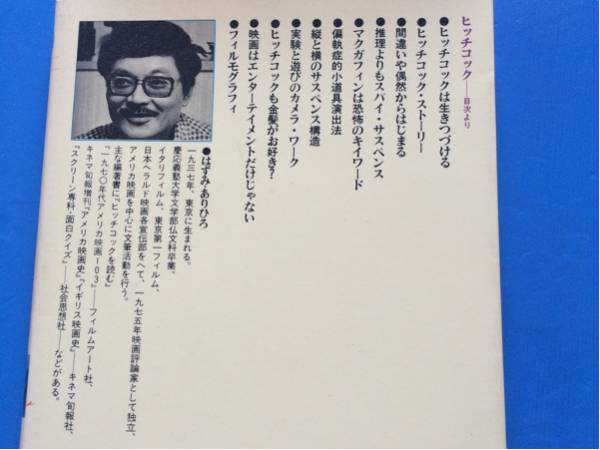 ヒッチコック——目次より
●ヒッチコックは生きつづける
●ヒッチコック・ストーリー
●間違いや偶然からはじまる
●推理よりもスパイ・サスペンス
●マクガフィンは恐怖のキイワード
●偏執症的小道具演出法
●縦と横のサスペンス構造
●実験と遊びのカメラ・ワーク
●ヒッチコックも金髪がお好き?
●映画はエンターテイメントだけじゃない
●フィルモグラフィ
●はずみ・ありひろ
一九三七年、東京に生まれる。
慶応義塾大学文学部仏文科卒業。
イタリフィルム、東京第一フィルム、
日本ヘラルド映画各宣伝部をへて、一九七五年映画評論家として独立、
アメリカ映画を中心に文筆活動を行う。
主な編著書に『ヒッチコックを読む』
『一九七〇年代アメリカ映画103』——フィルムアート社、
キネマ旬報増刊『アメリカ映画史』『イギリス映画史』——キネマ旬報社、
『スクリーン専科・面白クイズ』——社会思想社——などがある。